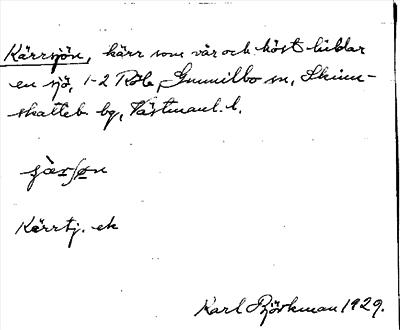 Kärrsjön, kärr som vår och höst bildar
en sjö, 1-2 Röbo, Gunnilbo sn, Skinn-
skatteb. bg, Västmanl. l.
Kärrtj. ek
Karl Björkman 1929.